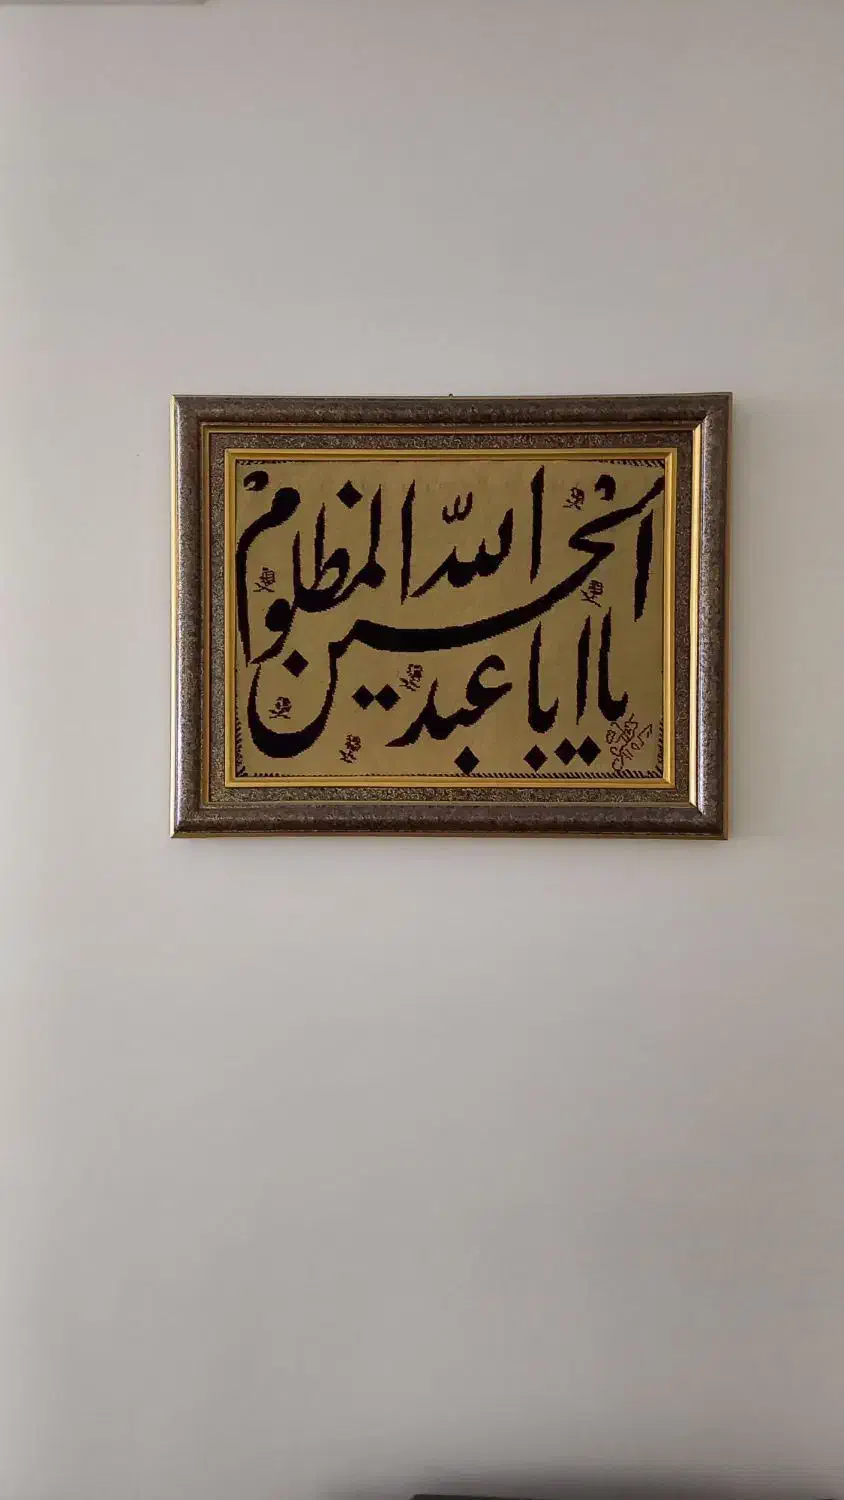 یا ابا عبد الله الحسین المظلوم